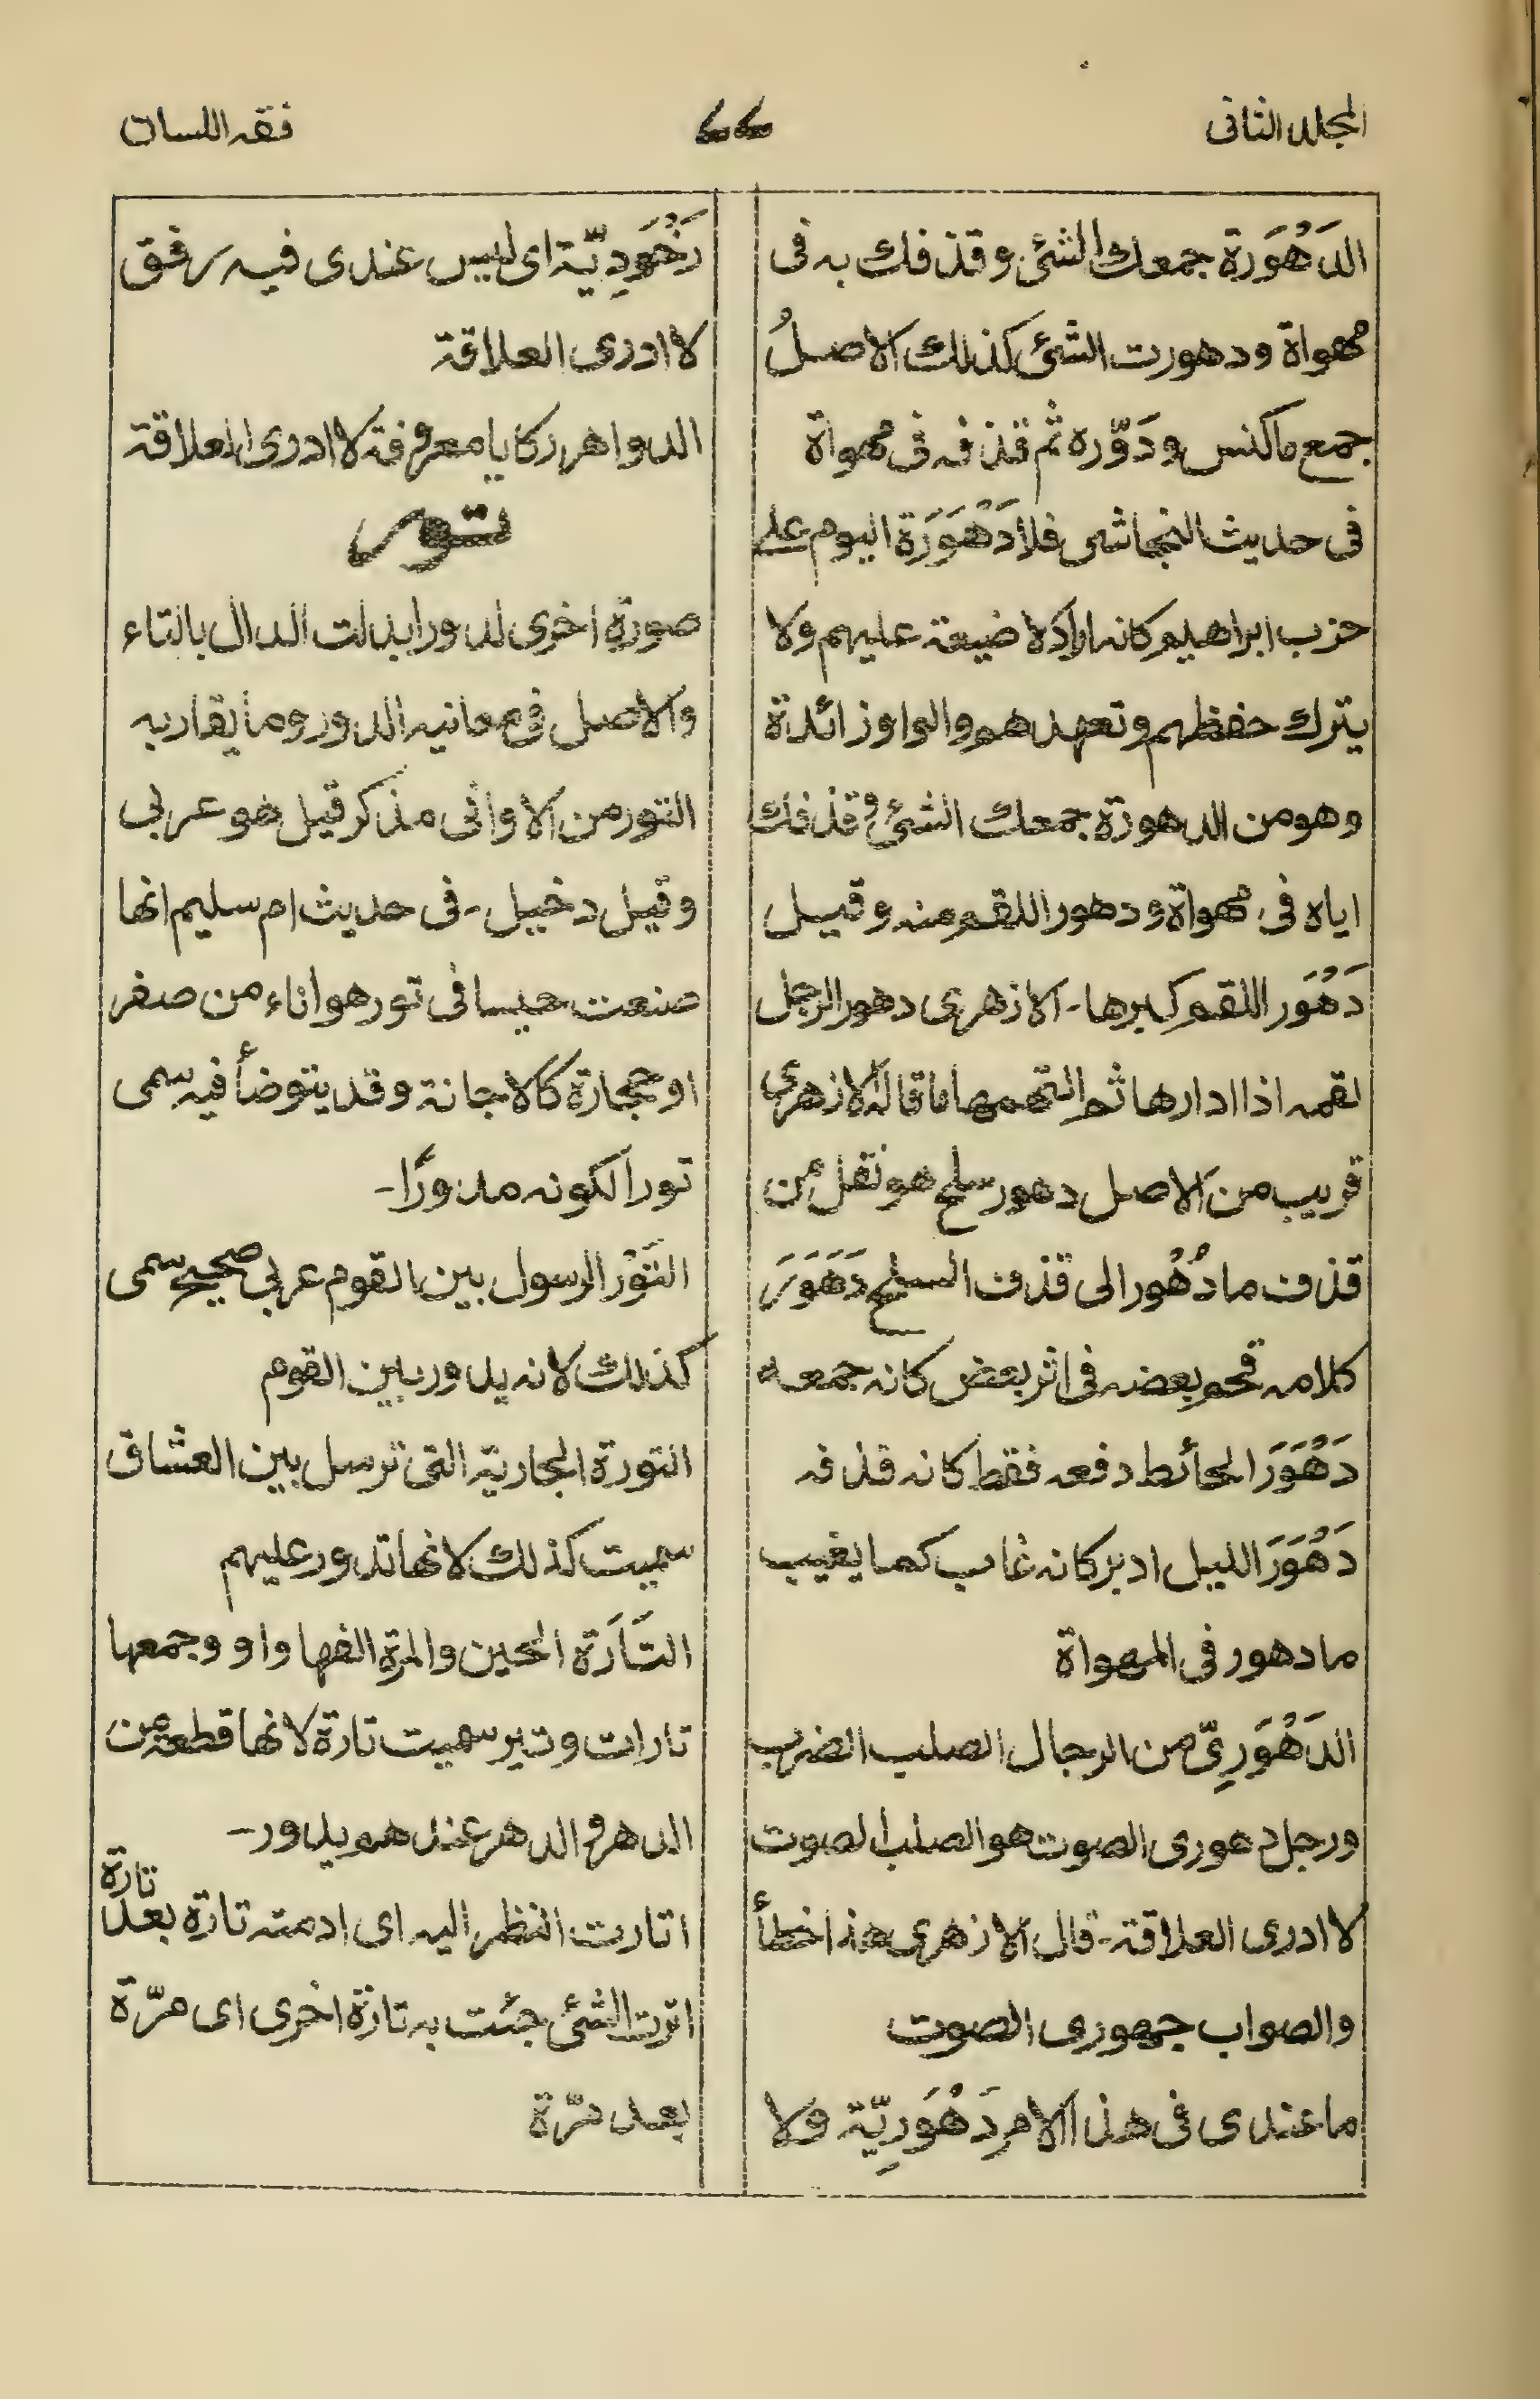 المجلد الثانى
٦٦
فقه اللسان
الدَهْوَرَة جمعك الشئ وقذفك به فى
مهواة ودهورت الشئ كذلك الاصلُ
جمع ماكنس ودَوّره ثم قذفه فى مهواة
فى حديث النجاشى فلا دَهْوَرَة اليوم على
حزب ابراهيم كانه اراد لا ضيعة عليهم ولا
يترك حفظهم وتعهدهم والواو زائدة
وهومن الدهورة جمعك الشئ وقذفك
اياه فى مهواة ودهور اللقم منه وقيل
دَهْوَر اللقم كبرها - الازهرى دهور الرجل
لقمه اذا ادارها ثم التهمها ما قاله الازهرى
قريب من الاصل دهور سلح هو نقل من
قذف ما دُهْوِر الى قذف السلح دَهْوَرَ
كلامه قحم بعضه فى اثر بعض كانه جمعه
دَهْوَرَ الحائط دفعه فقط كانه قذفه
دَهْوَرَ الليل ادبر كانه غاب كما يغيب
ما دهور فى المهواة
الدَهْوَرِىّ من الرجال الصلب الضرب
ورجل دهورى الصوت هو الصلب الصوت
لا ادرى العلاقة - قال الازهرى هذا خطأ
والصواب جهورى الصوت
ما عندى فى هذا الامر دَهْوَرِيّة ولا
رَخْوَدِيّة اى ليس عندى فيه رفق
لا ادرى العلاقة
الدواهر ركايا معروفة لا ادرى العلاقة
تور
صورة اخرى لدور ابدلت الدال بالتاء
والاصل فى معانيه الدور وما يقاربه
التور من الاوانى مذكر قيل هو عربى
وقيل دخيل - فى حديث ام سليم انها
صنعت حيسا فى تور هو اناء من صفر
او حجارة كالاجانة وقد يتوضأ فيه سمى
توراً لكونه مدورًا -
التَّوْر الرسول بين القوم عربى صحيح سمى
كذلك لانه يدور بين القوم
التورة الجارية التى ترسل بين العشاق
سميت كذلك لانها تدور عليهم
التَارَة الحين والمرة الفها واو وجمعها
تارات وتير سميت تارة لانها قطعة من
الدهر والدهر عندهم يدور -
اتارت النظر اليه اى ادمته تارة بعد تارة
اترت الشئ جئت به تارة اخرى اى مرّة
بعد مرّة